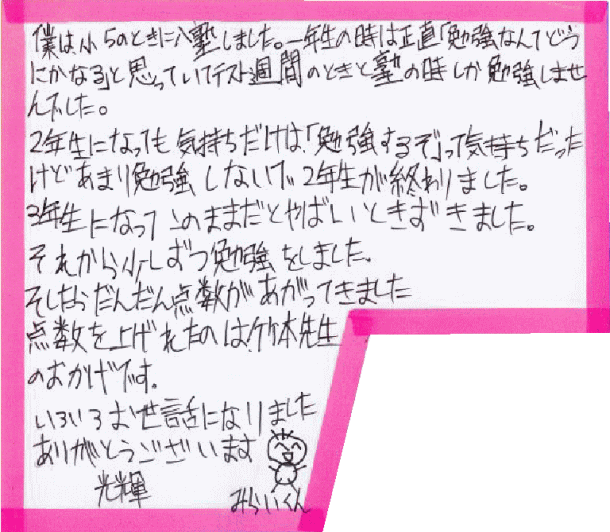 僕は小5のときに入塾しました。一年生の時は正直「勉強なんてどう
にかなる」と思っていてテスト週間のときと塾の時しか勉強しませ
んでした。
2年生になっても気持ちだけは「勉強するぞ」って気持ちだった
けどあまり勉強しないで2年生が終わりました。
3年生になってこのままだとやばいときずきました。
それから少しずつ勉強をしました。
そしたらだんだん点数があがってきました
点数を上げれたのは竹本先生
のおかげです。
いろいろお世話になりました
ありがとうございます
光輝
みらいくん